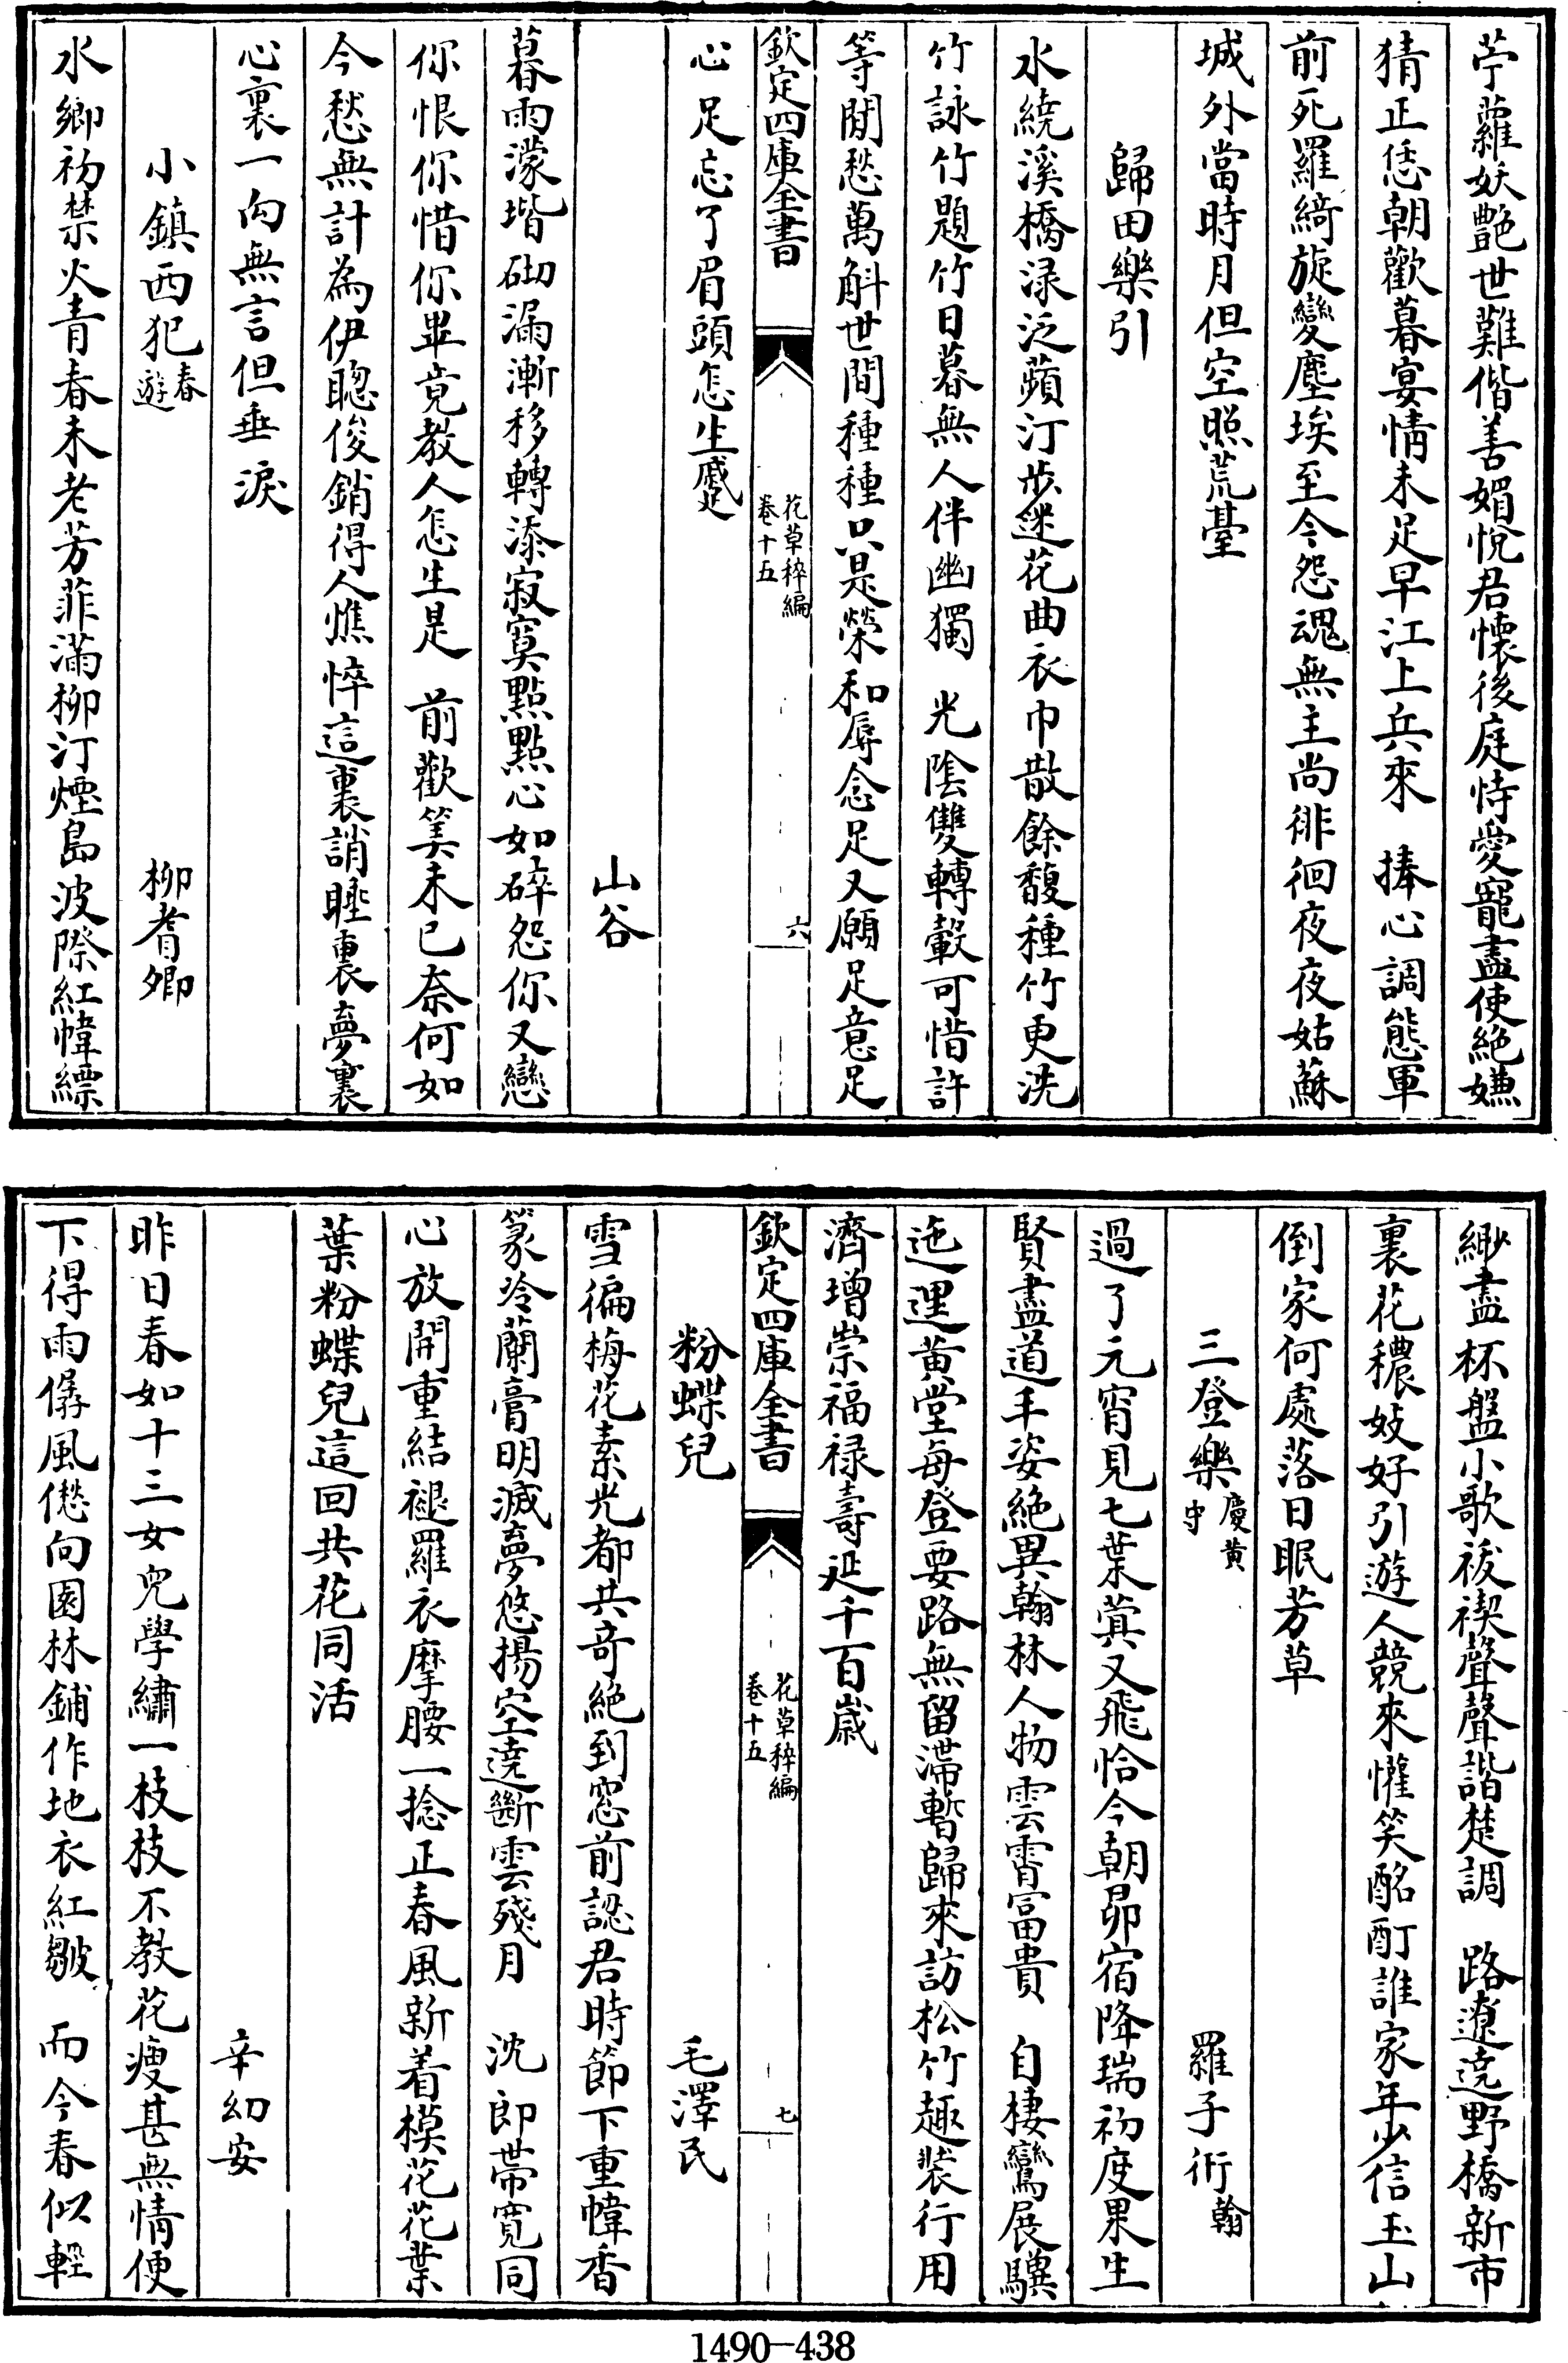 苧蘿妖艶世難偕善媚悅君懷後庭恃愛寵盡使絕嫌
猜正恁朝歡暮宴情未足早江上兵來　捧心調態軍
前死羅綺旋變塵埃至今怨魂無主尚徘徊夜夜姑蘇
城外當時月但空照荒臺
歸田樂引
水繞溪橋渌泛蘋汀步迷花曲衣巾散餘馥種竹更洗
竹詠竹題竹日暮無人伴幽獨　光陰雙轉轂可惜許
等閒愁萬斛世間種種只是榮和辱念足又願足意足
欽定四庫全書
花草稡編
卷十五
六
心足忘了眉頭怎生蹙
山谷
暮雨濛堦砌漏漸移轉添寂寞點點心如碎怨你又戀
你恨你惜你畢竟教人怎生是　前歡筭未已奈何如
今愁無計為伊聰俊銷得人憔悴這裏誚睡裏夢裏
心裏一向無言但垂淚
小鎮西犯春遊　柳耆卿
水鄉初禁火青春未老芳菲滿柳汀煙島波際紅幃縹
緲盡杯盤小歌祓禊聲聲諧楚調　路遼遶野橋新市
裏花穠妓好引遊人競來懽笑酩酊誰家年少信玉山
倒家何處落日眠芳草
三登樂慶黃守　羅子衎翰
過了元宵見七葉蓂又飛恰今朝昴宿降瑞初度果生
賢盡道丰姿絕異翰林人物雲霄富貴　自棲鸞展驥
迤邐黃堂每登要路無留滯暫歸來訪松竹趣裝行用
濟增崇福祿壽延千百歲
欽定四庫全書
花草稡編
卷十五
七
粉蝶兒　毛澤民
雪徧梅花素光都共奇絕到窓前認君時節下重幃香
篆冷蘭膏明滅夢悠揚空遶斷雲殘月　沈郎帶寬同
心放開重結褪羅衣摩腰一捻正春風新着模花花葉
葉粉蝶兒這回共花同活
辛幼安
昨日春如十三女兒學繡一枝枝不教花瘦甚無情便
下得雨僝風僽向園林鋪作地衣紅皺　而今春似輕
1490-438